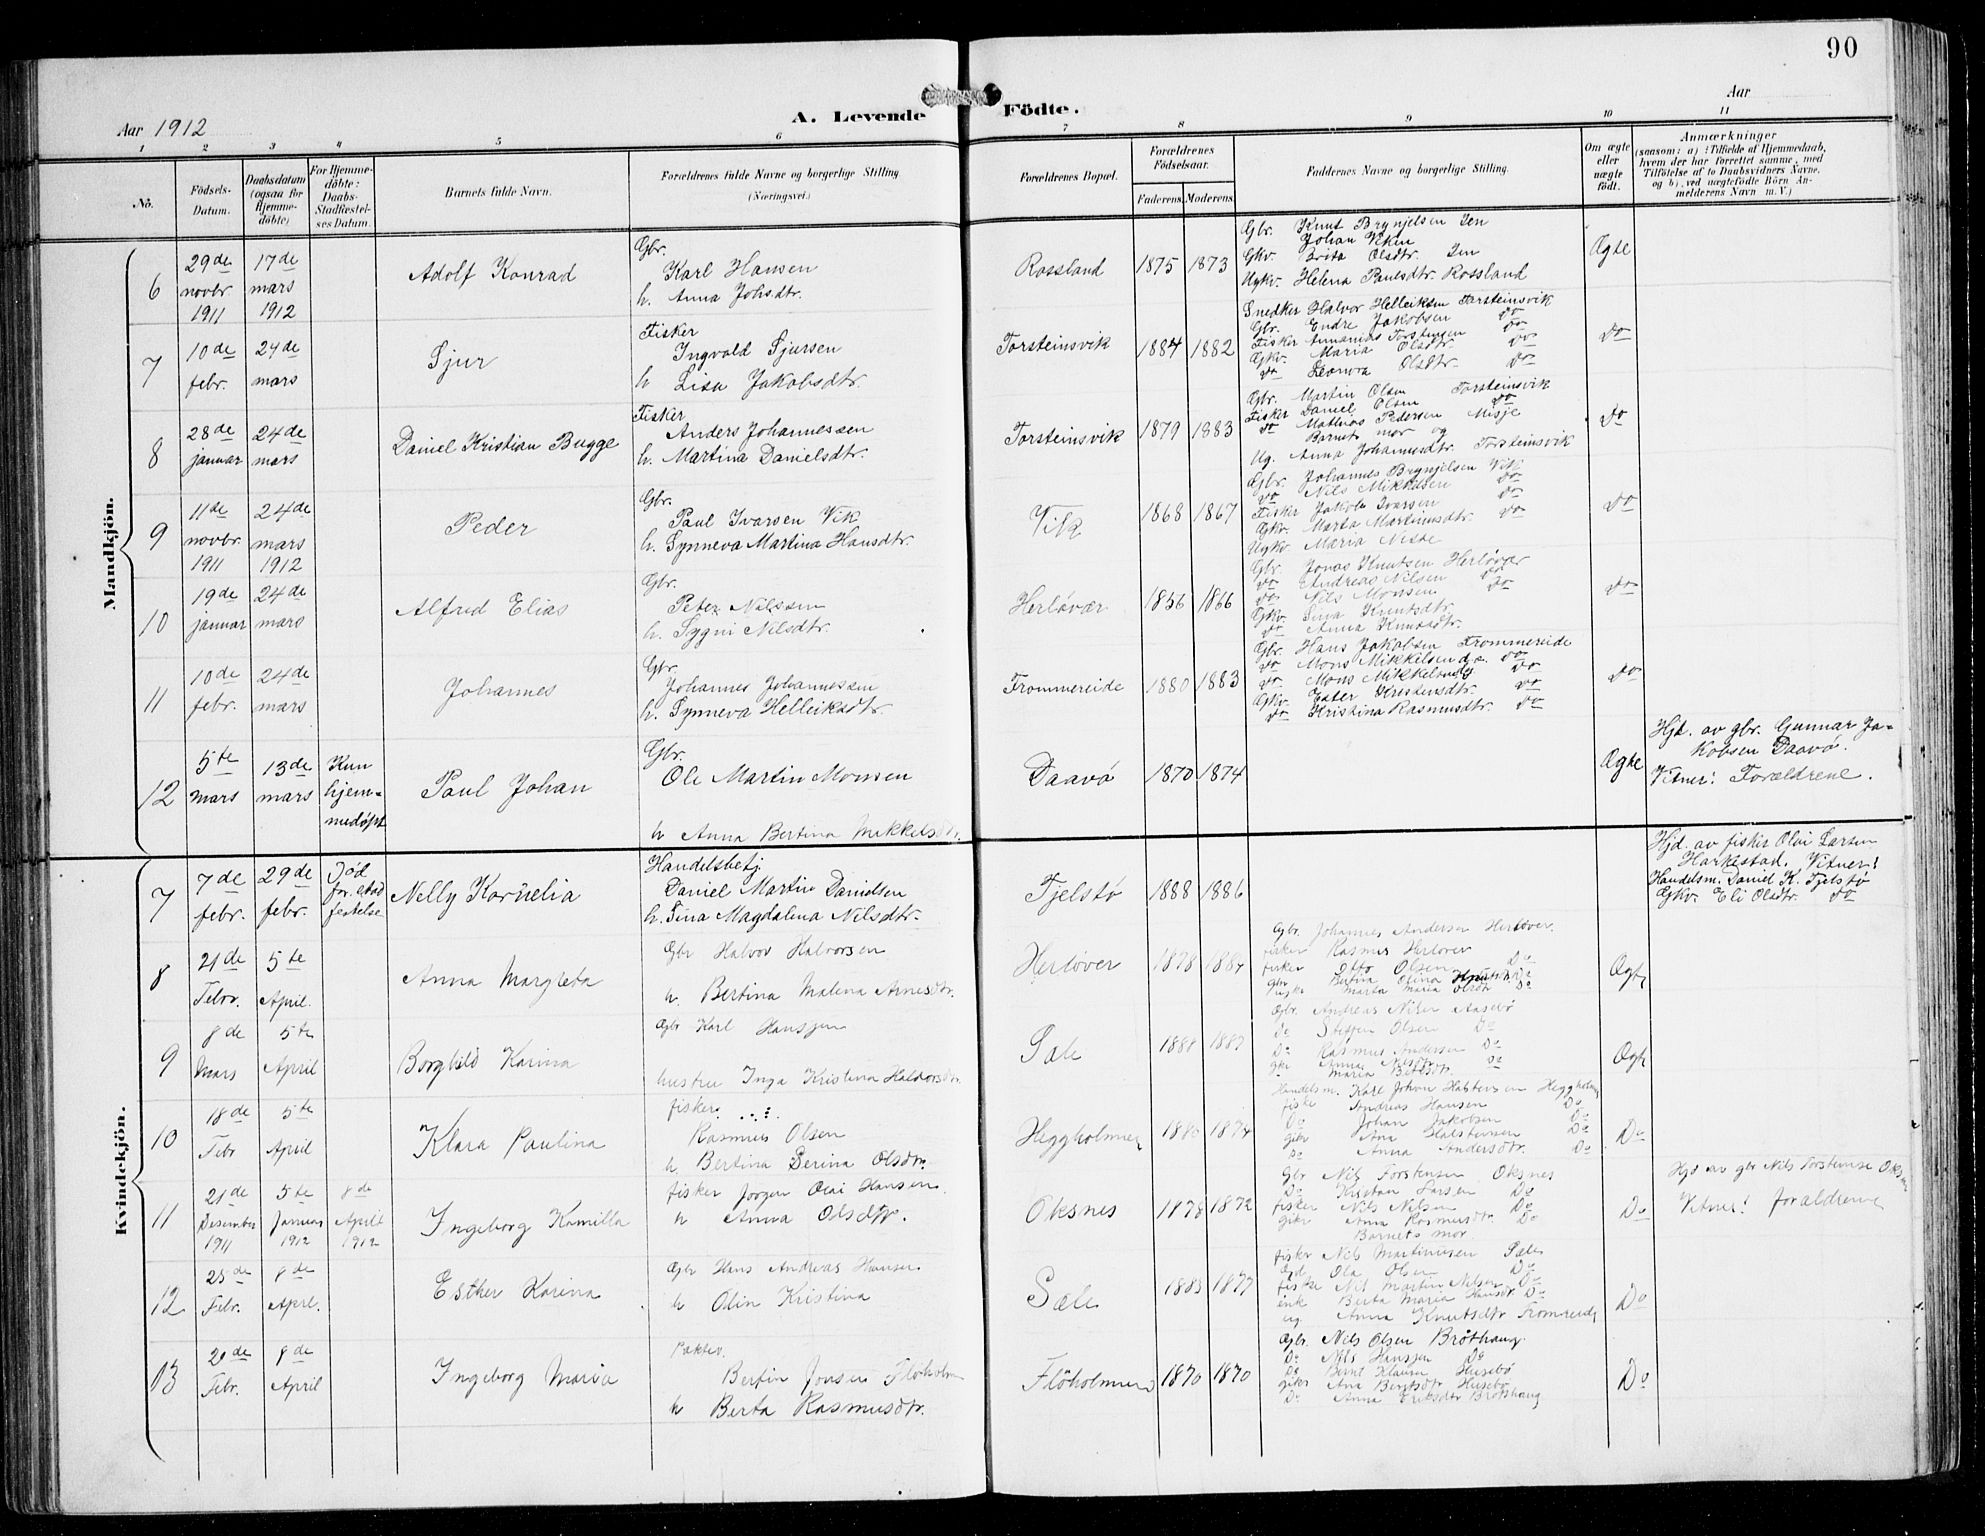 90
A. Levende Födte.
Aar 1912
Aar
1 2 3 4 5 6 7 8 9 10 11
No.
Födsels-Datum.
Daabsdatum (ogsaa for Hjemme-döbte)
For Hjemme-döbte: Daabs-Stadfæstel-ses Datum.
Barnets fulde Navn.
Forældrenes fulde Navne og borgerlige Stilling (Næringsvei.)
Forældrenes Bopæl.
Forældrenes Födselsaar.
Faderens. Moderens.
Faddernes Navne og borgerlige Stilling.
Om ægte eller uægte födt.
Anmærkninger
(saasom: a) i Tilfælde af Hjemmedaab, hvem der har forrettet samme, med Tilföielse af to Daabsvidners Navne, og b), ved uægtefödte Börn Anmelderens Navn m. V.)
Mandkjön.
6
29de novbr. 1911
17de mars 1912
Adolf Konrad
Gbr.
Karl Hansen
h. Anna Johsdtr.
Rossland
1875 1873
Gbr. Knut Brynjelsen
Johan Viken
Gkv. Brita Olsdtr.
Ugkv. Helena Paulsdtr. Rossland
Ægte
7
10de febr.
24de mars
Sjur
Fisker
Ingvald Sjursen
h Lisa Jakobsdtr.
Torsteinsvik
1884 1882
Snedker Halvor Helleiksen Torsteinsvik
Gbr. Endre Jakobsen do
Fisker Ananias Torsteinsen do
Gkv. Maria Olsdtr. do
do Leonora Olsdtr. do
do
8
28de januar
24de mars
Daniel Kristian Bugge
Fisker
Anders Johannessen
h. Martina Danielsdtr.
Torsteinsvik
1879 1883
Gbr. Martin Olsen Torsteinsvik
Fisker Daniel Olsen do
do Mathias Pedersen Misje
Barnets mor og
Ug. Anna Johannesdtr. Torsteinsvik
do
9
11te novbr. 1911
24de mars 1912
Peder
Gbr.
Paul Ivarsen Vik
h. Synneva Martina Hansdtr.
Vik
1868 1867
Gbr. Johannes Brynjelsen Vik
do Nils Mikkelsen do
Fisker Jakob Ivarsen do
Gkv. Marta Martinusdtr. do
Ugkv. Maria Neste
do
10
19de januar
24de mars
Alfred Elias
Gbr.
Peter Nilssen
h. Sygni Nilsdtr.
Herløvær
1856 1866
Gbr. Jonas Knutsen Herløvær
do Andreas Nilsen do
do Nils Monsen do
Gkv. Sina Knutsdtr.
do Anna Knutsdtr.
do
11
10de febr.
24de mars
Johannes
Gbr.
Johannes Johannessen
h. Synneva Helleiksdtr.
Frommereide
1880 1883
Gbr. Hans Jakobsen Frommereide
do Mons Mikkelsen d.e. do
do Mons Mikkelsen d.y. do
Gkv. Ester Kristensdtr. do
do Kristina Rasmusdtr. do
do
12
5te mars
13de mars
Kun hjem-medøpt
Paul Johan
Gbr.
Ole Martin Monsen
h Anna Bertina Mikkelsdtr.
Daavø
1870 1874
Ægte
Hjd. av gbr. Gunnar Ja-
kobsen Daavø.
Vitner: Forældrene.
Kvindekjön.
7
7de febr.
29de febr.
Død for stad festelse
Nelly Kornelia
Handelsbetj.
Daniel Martin Danielsen
h. Tina Magdalena Nilsdtr.
Tjelstø
1888 1886
Hjd. av fisker Olai Larsen
Harkestad. Vitner:
Handelsm. Daniel K. Tjelstø
Gkv. Eli Olsdtr. do
8
21de Febr.
5te April.
Anna Margreta
Gbr Halvor Halvorsen
h. Bertina Malena Arnesdtr.
Herløver
1878 1884
Gbr. Johannes Andersen Herløver.
fisker Rasmus Herløver
fisker Otto Olsen Do
Marta Maria Olsdtr Do
Ægte
9
8de Mars
5te April
Borghild Karina
Gbr Karl Hanssen
hustru Inga Kristina Haldorsdtr.
Sæle
1888 1887
Gbr. Andreas Nilsen Aasebø
Do Steffen Olsen Do
Do Rasmus Andersen Do
gkv Anna Nilsdtr. Do
Ægte
10
18de Febr
5te April
Klara Paulina
fisker.
Rasmus Olsen
h. Bertina Serina Olsdtr.
Heggholmen
1874
Handelsm. Karl Johan Halstensen Heggholmen
fiske Andreas Hansen Do
Do Johan Jakobsen Do
gkv Ana Halstensen Do
Do Anna Andersdtr. Do
Do
11
21de Desember 1911
5te Januar 1912
8de April 1912
Ingeborg Kamilla
fisker Jørgen Olai Hansen.
h Anna Olsdtr.
Oksnes
1878 1872
Gbr Nils Torstensen Oksnes
Do Kristian Larsen Do
fisker Nils Nilsen Do
gkv Anna Rasmusdtr. Do
Barnets mor.
Do
Hjd av gbr Nils Torstense Oksnes
Vitner: foraldrene
12
25de Febr.
8de April.
Esther Karina
Gbr Hans Andreas Hansen
h Olin Kristina
Sæle
1883 1877
fisker Nils Martinusen Sæle
Ola Olsen Do
fiske Nil Martin Nilsen Do
enk Berta Maria Hansdtr Do
ug Anna Knutsdtr Fromreide
Do
13
20de Febr.
8de April
Ingeborg Maria
Pakter
Bertin Jonsen Fløholm
h Berta Rasmusdtr.
Fløholmen
1870 1870
Gbr. Nils Olsen Brøthaug.
Do Nils Hanssen Do
Do Bernt Klausen Husebø
gkv Ana Berntsdtr Husebø
Do. Anna Eriksdtr Brøthaug
Do